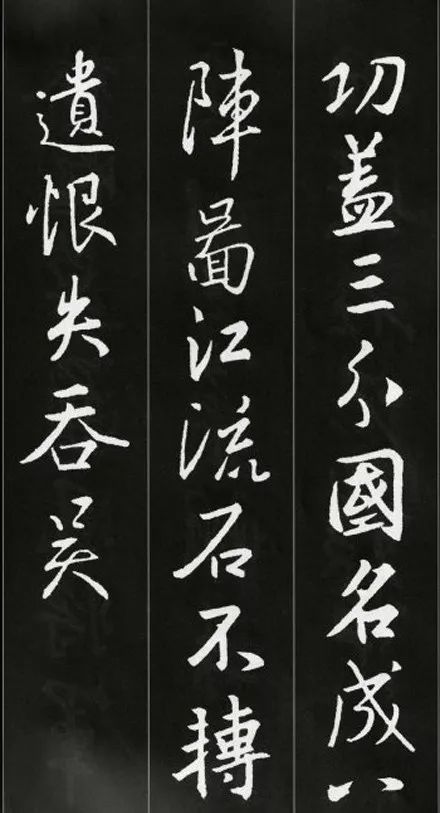 功盖三分國名成八
陣圖江流石不轉
遺恨失吞吴